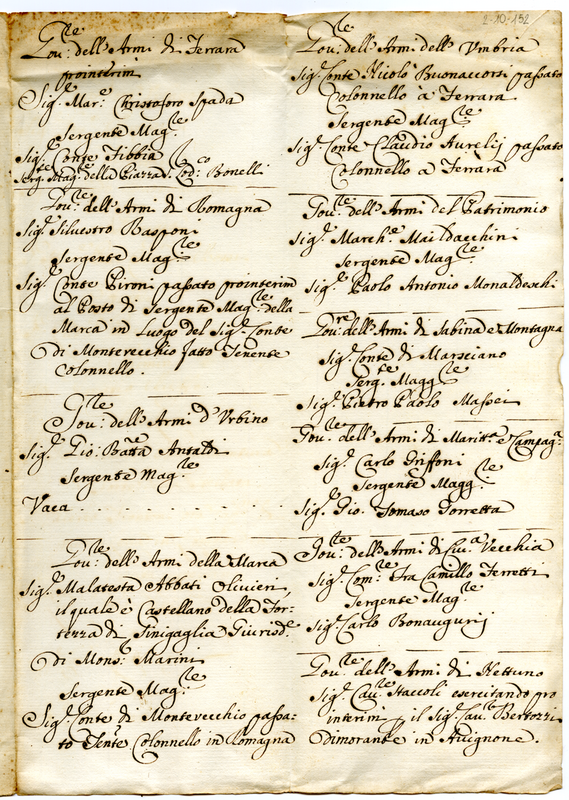 2-10-152
Gou.le dell'Armi di Ferrara
prointerim
Sig.r Mar.e Christoforo Spada
Sergente Mag.le
Sig.r Conte Fibbia
Serg.te Mag.le della Piazza S. Lod.co Bonelli
Gou.le dell'Armi di Romagna
Sig.r Siluestro Rasponi
Sergente Mag.le
Sig.r Conte Pironi passato prointerim
al Posto di Sergente Mag.le della
Marca in Luogo del Sig.r Conte
di Monteuecchio fatto Tenente
Colonnello.
Gou.le dell'Armi d'Vrbino
Sig.r Gio: Batta Antaldi
Sergente Mag.le
Vaca . . . . . . . . . .
Gou.le dell'Armi della Marca
Sig.r Malatesta Abbati Oliuieri,
il quale è Castellano della For-
tezza di Sinigaglia Giurisd.e
di Mons: Marini
Sergente Mag.le
Sig.r Conte di Monteuecchio passa-
to Tente Colonnello in Romagna
Gou.le dell'Armi dell'Vmbria
Sig.r Conte Nicolò Buonaccorsi passato
Colonnello à Ferrara
Sergente Mag.le
Sig.r Conte Claudio Aurelij passato
Colonnello a Ferrara
Gou.le dell'Armi del Patrimonio
Sig.r March.e Maidacchini
Sergente Mag.le
Sig.r Paolo Antonio Monaldeschi
Gou.re dell'Armi di Sabina e Montagna
Sig.r Conte di Marsciano
Serg.te Magg.le
Sig.r Pietro Paolo Massei
Gou.le dell'Armi di Maritt.a e Campag.a
Sig.r Carlo Griffoni
Sergente Magg.le
Sig.r Gio. Tomaso Torretta
Gou.le dell'Armi di Ciu.a Vecchia
Sig.r Com.e Fra Camillo Ferretti
Sergente Mag.le
Sig.r Carlo Bonaugurij
Gou.le dell'Armi di Nettuno
Sig.r Cau.le Staccoli esercitando pro
interim il Sig.r Cau.le Bertozzi
dimorante in Auignone.